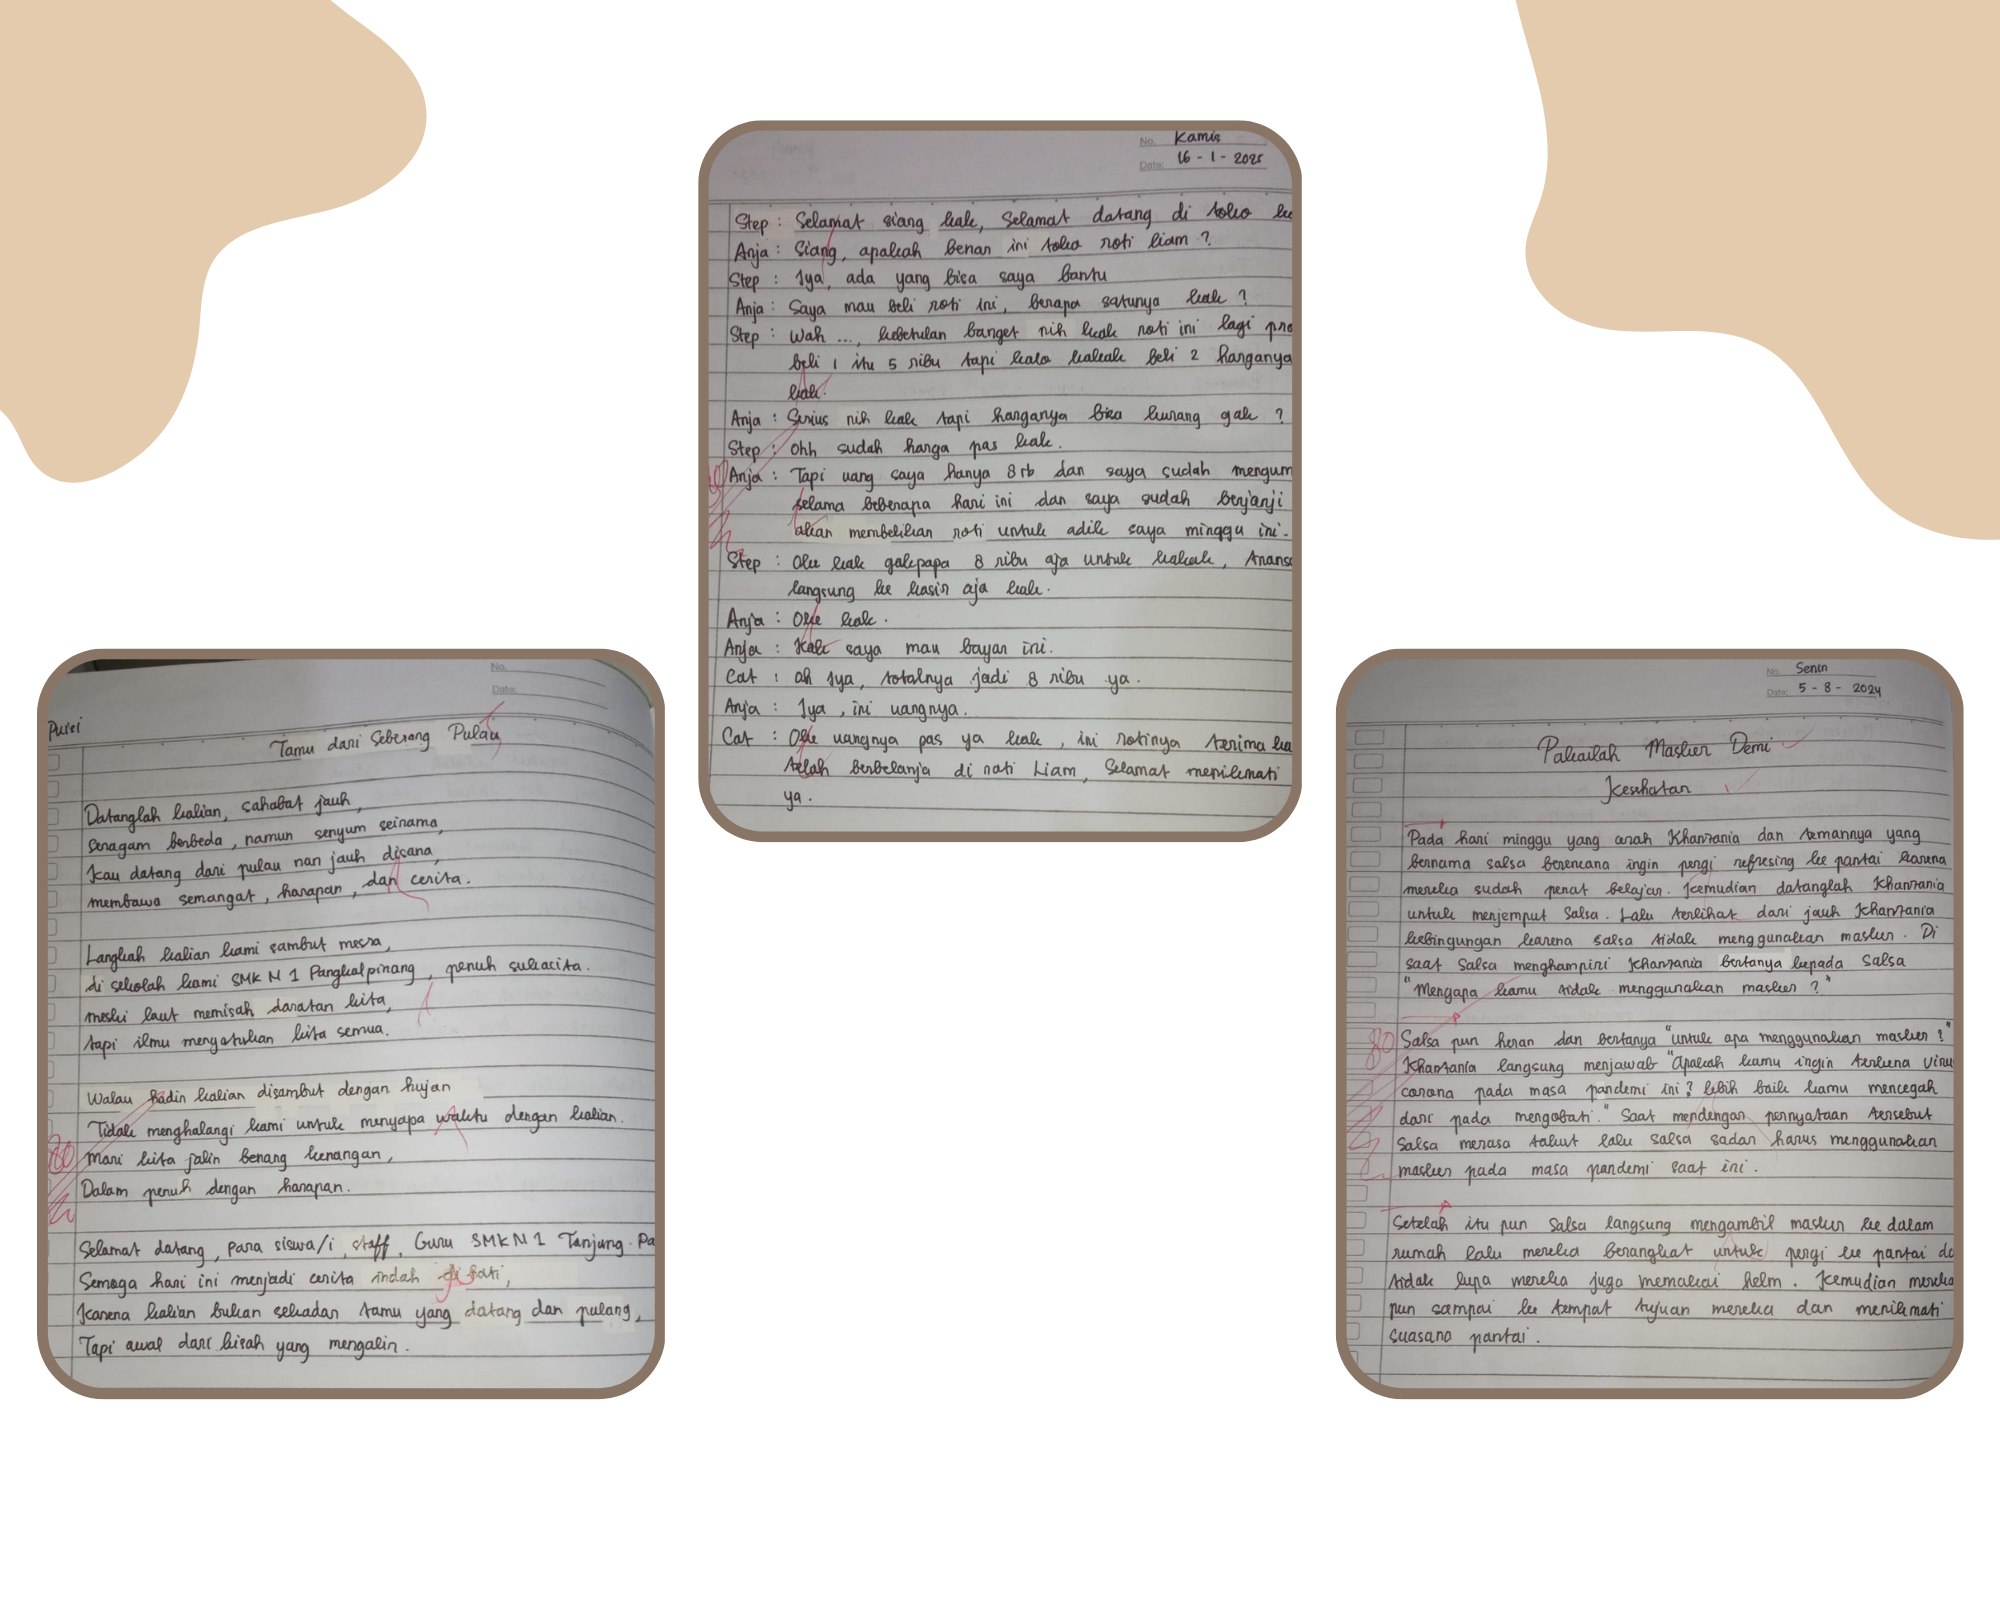 No. Kamis
Date: 16 - 1 - 2025
Step : Selamat siang kak, Selamat datang di toko
Anja : Siang, apakah benar ini toko roti liam ?
Step : Iya, ada yang bisa saya bantu
Anja : Saya mau beli roti ini, berapa satunya kak ?
Step : Wah ..., kebetulan banget nih kak roti ini lagi
beli 1 itu 5 ribu tapi kalo kakak beli 2 harganya
kak.
Anja : Serius nih kak tapi harganya bisa kurang gak ?
Step : Ohh sudah harga pas kak.
Anja : Tapi uang saya hanya 8 rb dan saya sudah
selama beberapa hari ini dan saya sudah berjanji
akan membelikan roti untuk adik saya minggu ini.
Step : Oke kak gakpapa 8 ribu aja untuk kakak,
langsung ke kasir aja kak.
Anja : Oke kak.
Anja : Kak saya mau bayar ini.
Cat : ah Iya, totalnya jadi 8 ribu ya.
Anja : Iya, ini uangnya.
Cat : Oke uangnya pas ya kak, ini rotinya terima
telah berbelanja di roti Liam, Selamat menikmati
ya.
No.
Date:
Puisi
Tamu dari Seberang Pulau
Datanglah kalian, sahabat jauh,
Seragam berbeda, namun senyum seirama,
Kau datang dari pulau nan jauh disana,
membawa semangat, harapan, dan cerita.
Langkah kalian kami sambut mesra,
di sekolah kami SMK N 1 Pangkalpinang, penuh sukacita.
meski laut memisah daratan kita,
tapi ilmu menyatukan kita semua.
Walau hadir kalian disambut dengan hujan
Tidak menghalangi kami untuk menyapa waktu dengan kalian.
mari kita jalin benang kenangan,
Dalam penuh dengan harapan.
80
Selamat datang, para siswa/i, staff, Guru SMK N 1 Tanjung.
Semoga hari ini menjadi cerita indah di hati,
Karena kalian bukan sekadar tamu yang datang dan pulang,
Tapi awal dari kisah yang mengalir.
No. Senin
Date: 5 - 8 - 2024
Pakailah Masker Demi
Kesehatan
Pada hari minggu yang cerah Khanzania dan temannya yang
bernama salsa berencana ingin pergi refresing ke pantai karena
mereka sudah penat belajar. Kemudian datanglah Khanzania
untuk menjemput Salsa. Lalu terlihat dari jauh Khanzania
kebingungan karena salsa tidak menggunakan masker. Di
saat Salsa menghampiri Khanzania bertanya kepada Salsa
"Mengapa kamu tidak menggunakan masker ?"
80
Salsa pun heran dan bertanya "untuk apa menggunakan masker ?"
Khanzania langsung menjawab "Apakah kamu ingin terkena
corona pada masa pandemi ini? lebih baik kamu mencegah
dari pada mengobati." Saat mendengar pernyataan tersebut
Salsa merasa takut lalu salsa sadar harus menggunakan
masker pada masa pandemi saat ini.
Setelah itu pun Salsa langsung mengambil masker ke dalam
rumah lalu mereka berangkat untuk pergi ke pantai
tidak lupa mereka juga memakai helm. Kemudian mereka
pun sampai ke tempat tujuan mereka dan menikmati
suasana pantai.